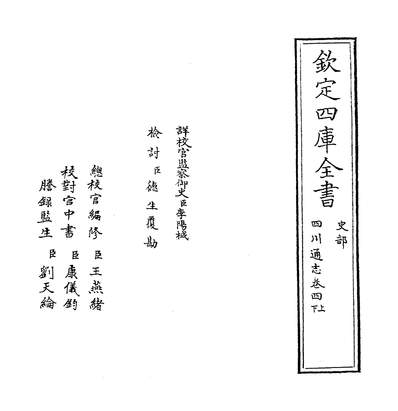 欽定四庫全書
史部
四川通志卷四上下
詳校官監察御史臣李陽棫
檢討臣德生覆勘
總校官編修臣王燕緒
校對官中書臣康儀鈞
謄錄監生臣劉天綸